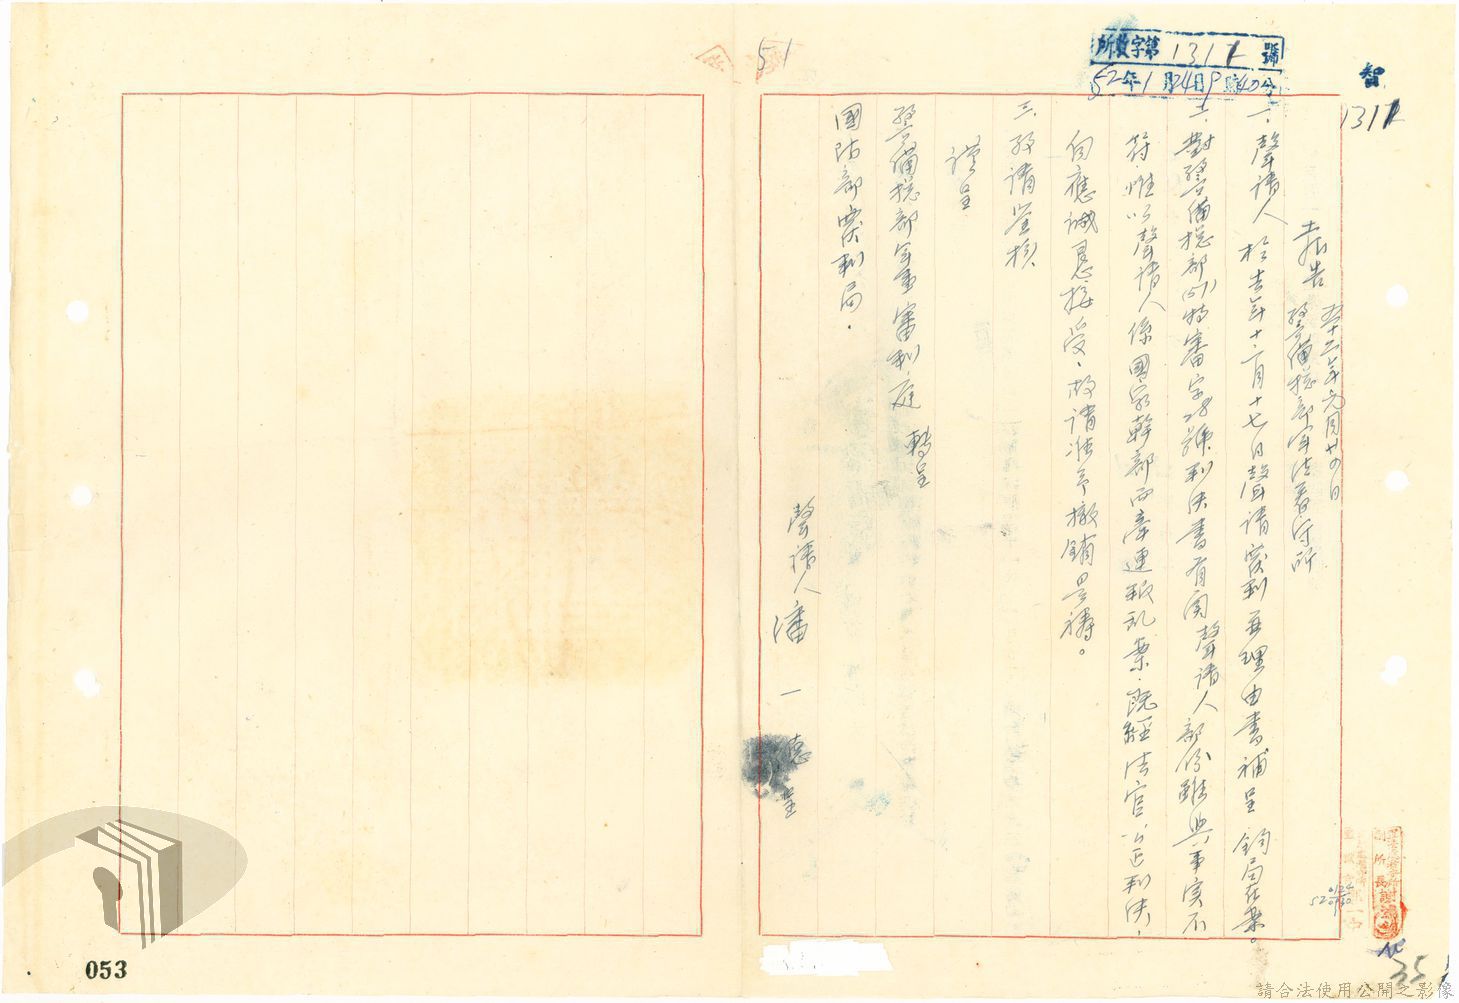 所收字第1317號
52年1月24日9時40分
智
1317
51
報告 五十二年元月廿四日
警備總部軍法看守所
一、聲請人於去年十二月十七日聲請覆判再理由書補呈 鈞局在案。
二、對警備總部(51)特審字28號判決書有関聲請人部份雖與事實不
符、惟以聲請人係國家幹部而牽連叛乱案、既經法官公正判決、
自應誠懇接受、敬請准予撤銷是禱。
三、敬請鑒核、
謹呈
警備總部軍事審判庭 轉呈
國防部覆判局。
聲請人 潘一德 呈
副所長謝
35
053
請合法使用公開之影像